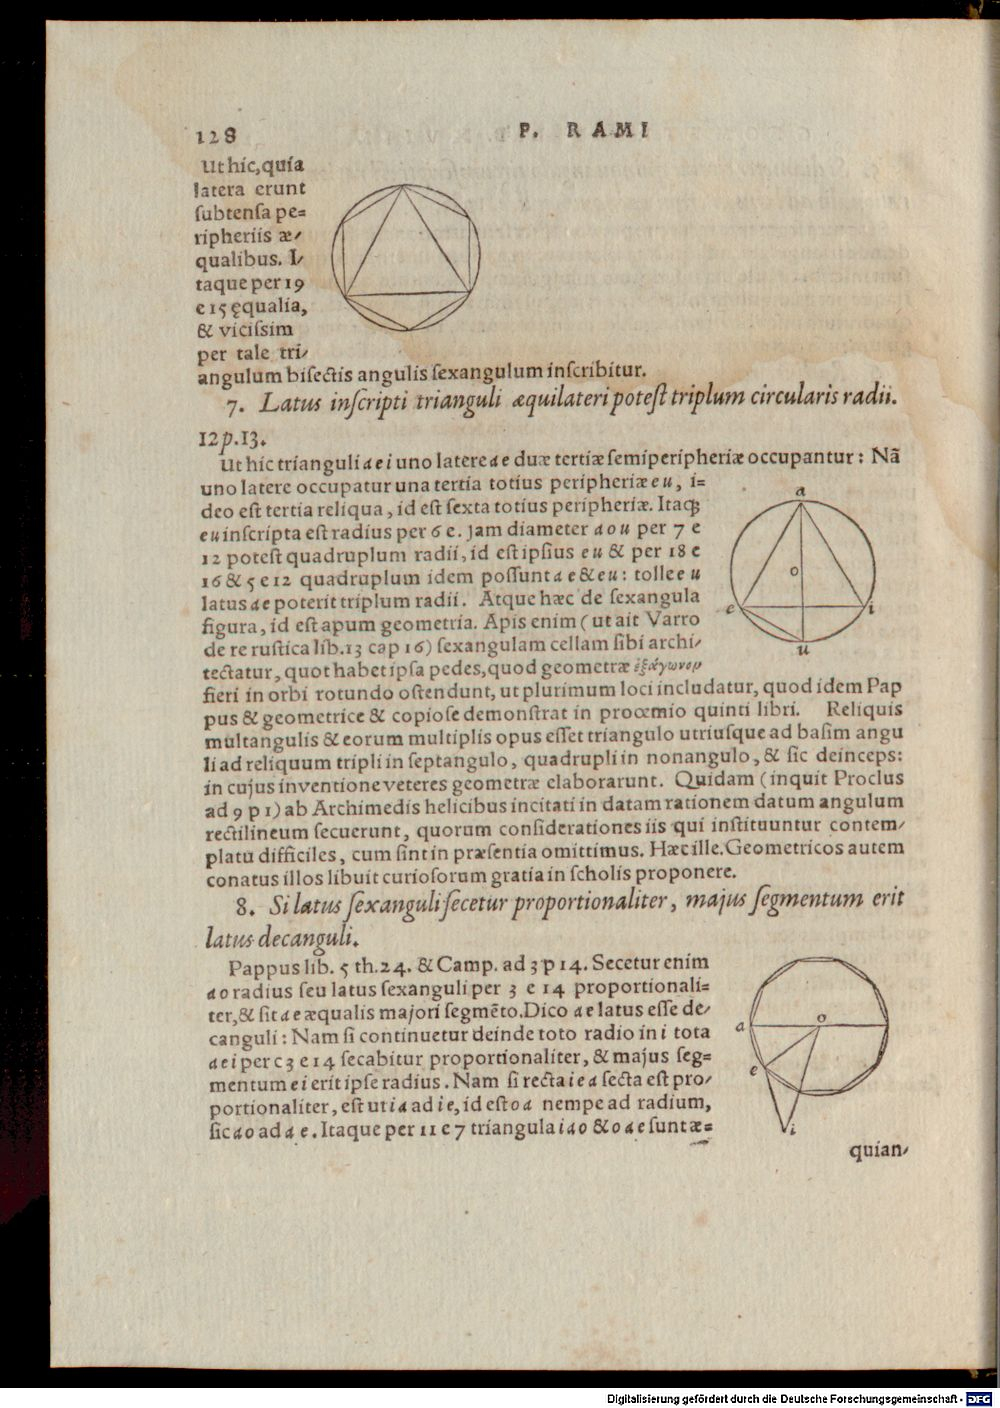 128
P. RAMI
Ut hic, quia
latera erunt
subtensa pe=
ripheriis æ-
qualibus. I-
taque per 19
e 15 ęqualia,
& vicissim
per tale tri-
angulum bisectis angulis sexangulum inscribitur.
7. Latus inscripti trianguli æquilateri potest triplum circularis radii.
12 p. 13.
Ut hic trianguli a e i uno latere a e duæ tertiæ semiperipheriæ occupantur: Nã
uno latere occupatur una tertia totius peripheriæ e u, i=
deo est tertia reliqua, id est sexta totius peripheriæ. Itaq;
e u inscripta est radius per 6 e. Jam diameter a o u per 7 e
12 potest quadruplum radii, id est ipsius e u & per 18 e
16 & 5 e 12 quadruplum idem possunt a e & e u: tolle e u
latus a e poterit triplum radii. Atque hæc de sexangula
figura, id est apum geometria. Apis enim (ut ait Varro
de re rustica lib. 13 cap 16) sexangulam cellam sibi archi-
tectatur, quot habet ipsa pedes, quod geometræ ἑξάγωνον
fieri in orbi rotundo ostendunt, ut plurimum loci includatur, quod idem Pap
pus & geometrice & copiose demonstrat in proœmio quinti libri. Reliquis
multangulis & eorum multiplis opus esset triangulo utriusque ad basim angu
li ad reliquum tripli in septangulo, quadrupli in nonangulo, & sic deinceps:
in cujus inventione veteres geometræ elaborarunt. Quidam (inquit Proclus
ad 9 p 1) ab Archimedis helicibus incitati in datam rationem datum angulum
rectilineum secuerunt, quorum considerationes iis qui instituuntur contem-
platu difficiles, cum sint in præsentia omittimus. Hæc ille. Geometricos autem
conatus illos libuit curiosorum gratia in scholis proponere.
8. Si latus sexanguli secetur proportionaliter, majus segmentum erit
latus decanguli.
Pappus lib. 5 th. 24. & Camp. ad 3 p 14. Secetur enim
a o radius seu latus sexanguli per 3 e 14 proportionali=
ter, & sit a e æqualis majori segmẽto. Dico a e latus esse de-
canguli: Nam si continuetur deinde toto radio in i tota
a e i per c 3 e 14 secabitur proportionaliter, & majus seg=
mentum e i erit ipse radius. Nam si recta i e a secta est pro-
portionaliter, est ut i a ad i e, id est o a nempe ad radium,
sic a o ad a e. Itaque per 11 e 7 triangula i a o & o a e sunt æ=
quian-
a
o
e
i
u
a
o
e
i
Digitalisierung gefördert durch die Deutsche Forschungsgemeinschaft - DFG